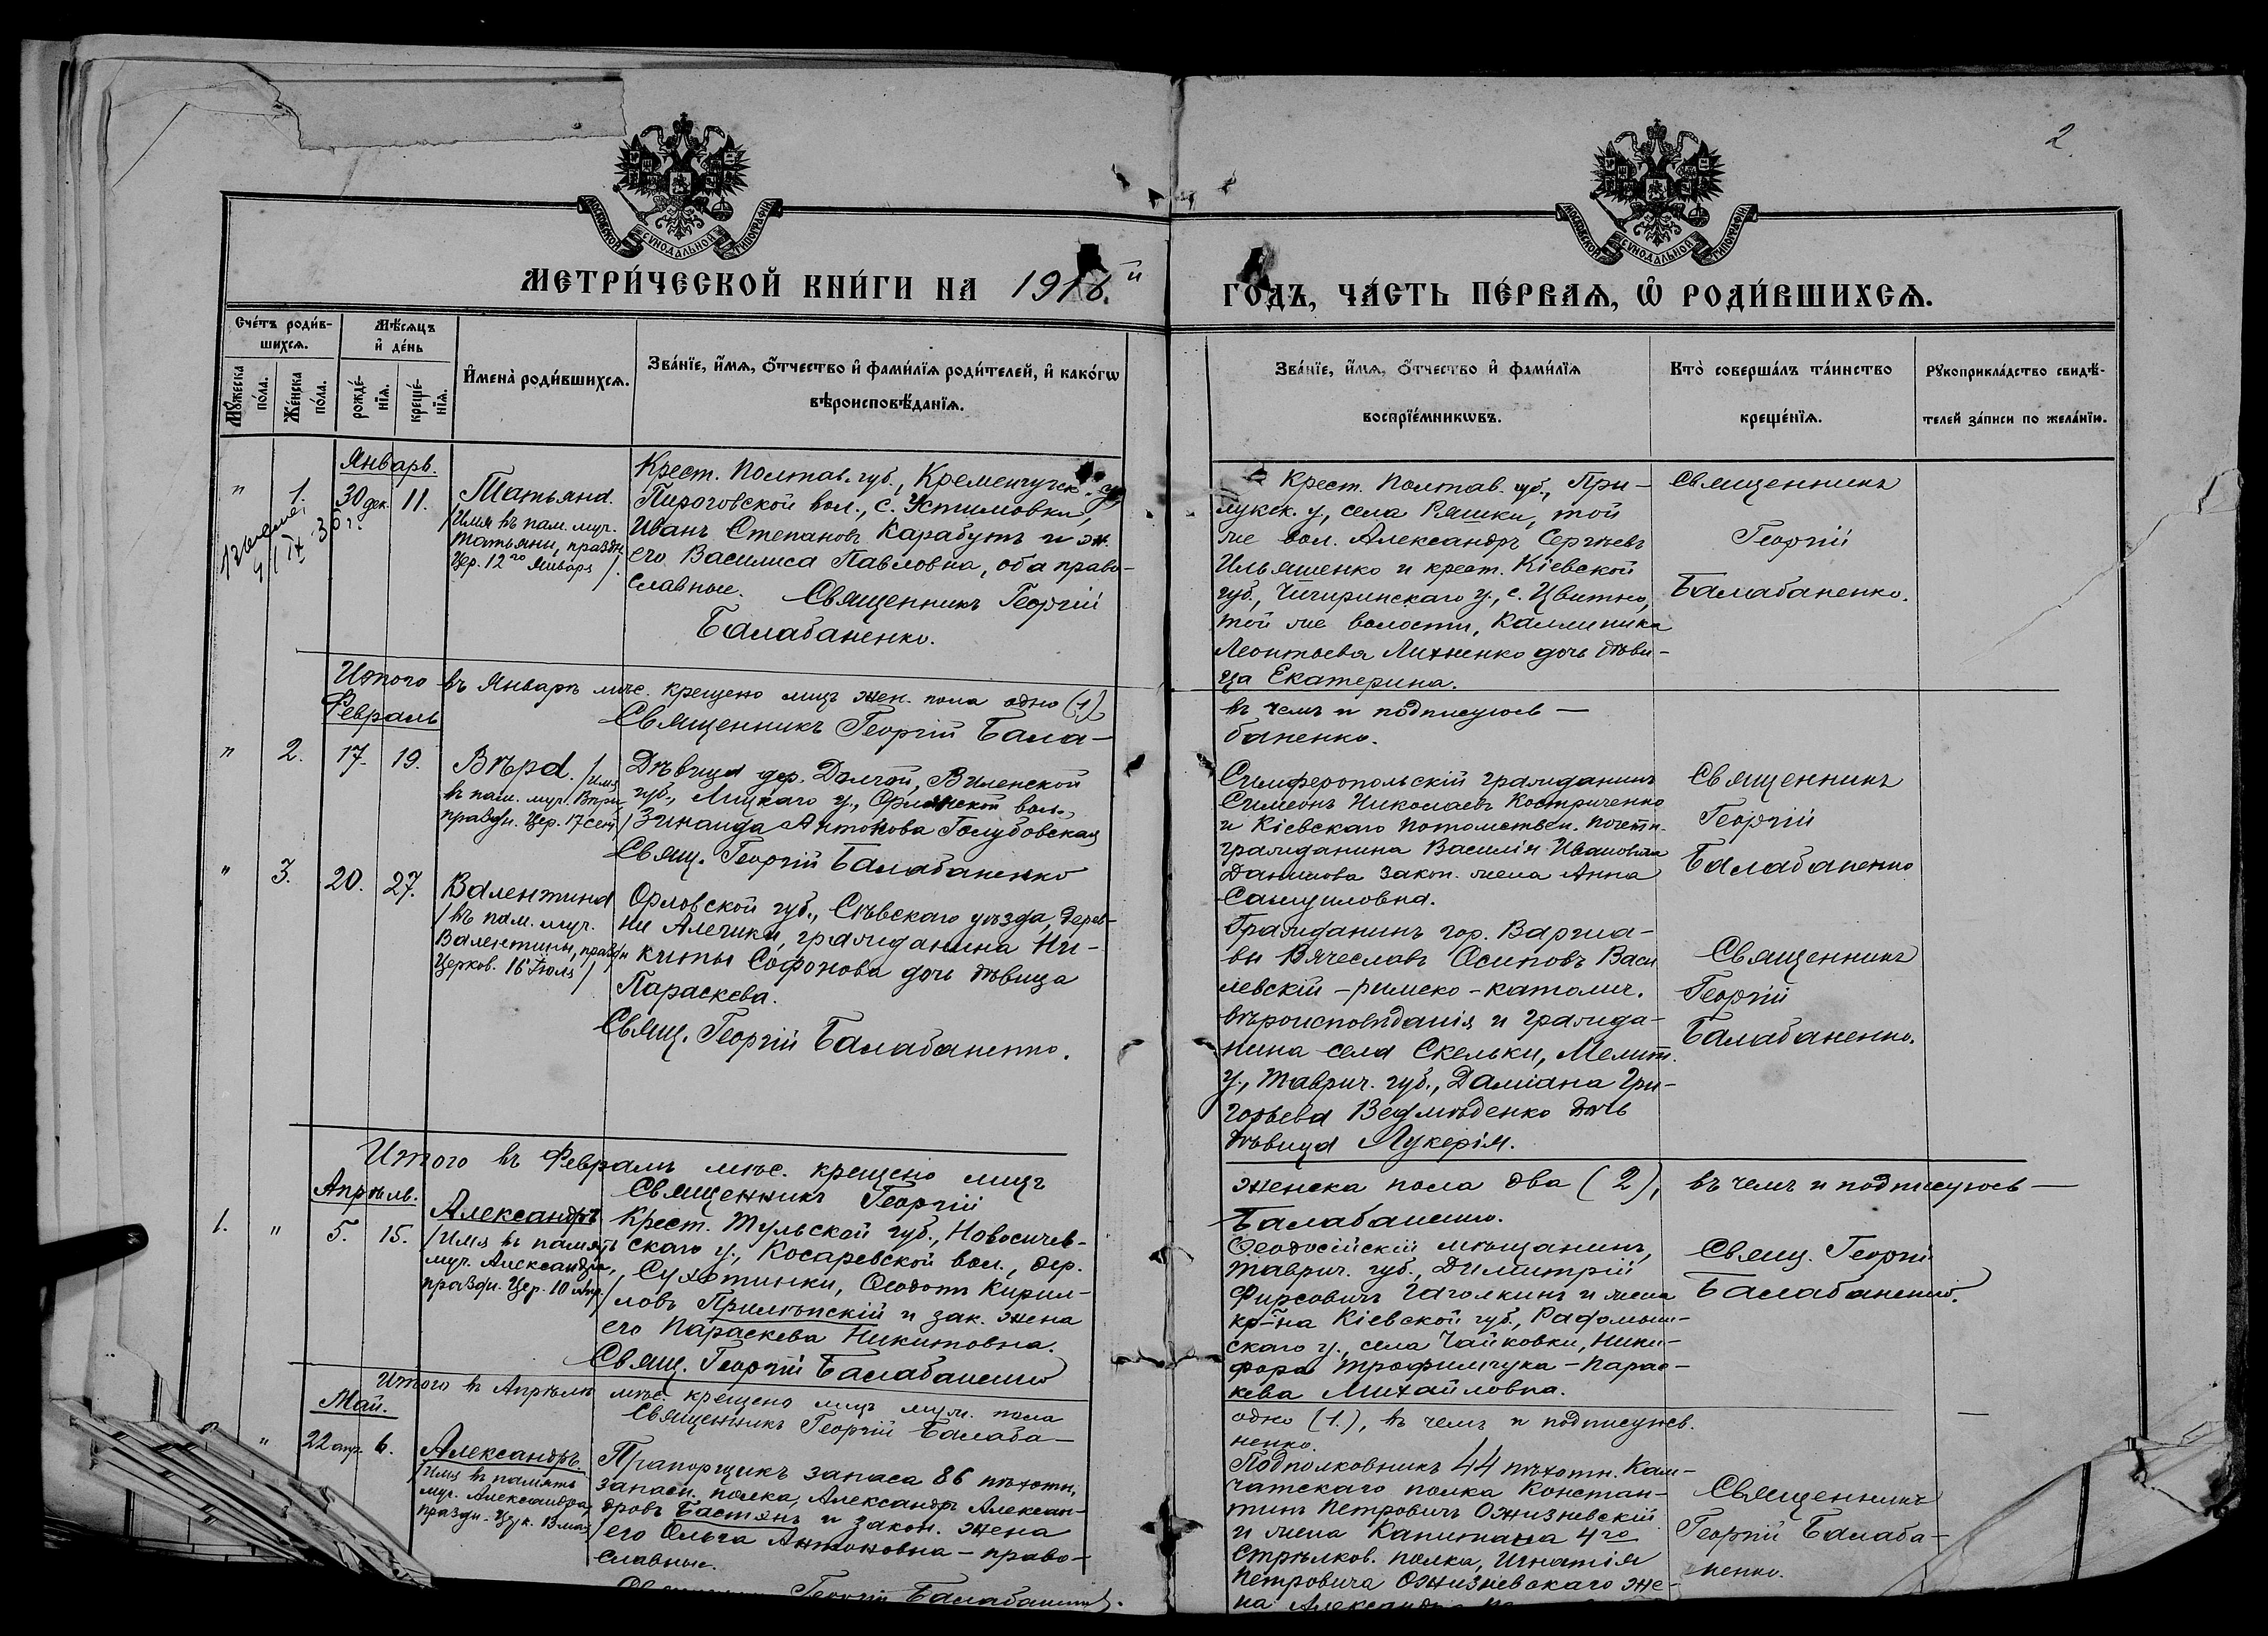 2
МОСКОВСКОЙ СѴНОДАЛЬНОЙ ТИПОГРАФІИ
МОСКОВСКОЙ СѴНОДАЛЬНОЙ ТИПОГРАФІИ
МЕТРИ́ЧЕСКОЙ КНИ́ГИ НА 1918.й ГОДЪ, ЧА́СТЬ ПЕ́РВАѦ, Ѡ РОДИ́ВШИХСѦ.
Сче́тъ роди́в-
шихсѧ.
Мꙋ́жеска по́ла.
Же́нска по́ла.
Мѣ́сѧцъ и҆ де́нь
рожде́-нїѧ.
креще́-нїѧ.
И҆мена̀ роди́вшихсѧ.
Зва́нїе, и҆́мѧ, ѻ҆́тчество и҆ фами́лїѧ роди́телей, и҆ како́гѡ
вѣроисповѣ́данїѧ.
Зва́нїе, и҆́мѧ, ѻ҆́тчество и҆ фами́лїѧ
воспрїе́мникѡвъ.
Кто̀ соверша́лъ та́инство
креще́нїѧ.
Рꙋкоприкла́дство свидѣ́-
телей за́писи по жела́нїю.
Январь.
" 1. 30 дек. 11.
Татьяна.
/Имя въ пам. муч.
Татьяны, праздн.
Цер. 12го Января/.
Крест. Полтав. губ., Кременчугск. у.
Пироговской вол., с. Устимовки,
Иванъ Степановъ Карабутъ и ж.
его Василиса Павловна, оба право-
славные. Священникъ Георгій
Балабаненко.
Крест. Полтав. губ., При-
лукск. у, села Ряшки, той
же вол. Александръ Сергѣевъ
Ильяшенко и крест. Кіевской
губ., Чигиринскаго у., с. Цвитно,
той же волости, Каллиника
Леонтьева Лихненко дочь дѣви-
ца Екатерина.
Священникъ
Георгій
Балабаненко.
Итого въ Январѣ мѣс. крещено лицъ жен. пола одно (1)
въ чемъ и подписуюсь —
Священникъ Георгій Бала-
баненко.
Февраль
" 2. 17. 19.
Вѣра. /Имя
въ пам. муч. Вѣры,
праздн. Цер. 17 сент/
Дѣвица дер. Долгой, Виленской
губ., Лидкаго у., Орлянской вол.,
Зинаида Антонова Голубовская
Свящ. Георгій Балабаненко
Симферопольскій гражданинъ
Симеонъ Николаевъ Костриченко
и Кіевскаго потомствен. почетн.
гражданина Василія Ивановича
Данилова закон. жена Анна
Самуиловна.
Священникъ
Георгій
Балабаненко
" 3. 20. 27.
Валентина
/въ пам. муч.
Валентины, праздн
Церков. 16 Іюля/
Орловской губ., Сѣвскаго уѣзда, дерев-
ни Алешки, гражданина Ни-
киты Софонова дочь дѣвица
Параскева.
Свящ. Георгій Балабаненко.
Гражданинъ гор. Варша-
вы Вячеславъ Осиповъ Васи
левскій - римско - католич.
вѣроисповѣданія и гражда-
нина села Скельки, Мелит.
у., Таврич. губ., Даміана Гри-
горьева Ведмѣденко дочь
дѣвица Лукерія.
Священникъ
Георгій
Балабаненко.
Итого въ Февралѣ мѣс. крещено лицъ
женска пола два (2), въ чемъ и подписуюсь —
Священникъ Георгій
Балабаненко.
Апрѣль.
1. " 5. 15.
Александръ
/Имя въ память
муч. Александра,
праздн. Цер. 10 апр./
Крест. Тульской губ., Новосилев-
скаго у., Косаревской вол., дер.
Сухотинки, Ѳеодотъ Кирил-
ловъ Прилѣпскій и зак. жена
его Параскева Никитовна.
Свящ. Георгій Балабаненко
Ѳеодосійскій мѣщанинъ,
Таврич. губ., Димитрій
Фирсовичъ Гаголкинъ и жена
кр-на Кіевской губ., Радомыш-
скаго у., села Чайковки, Ники-
фора Трофимчука - Парас-
кева Михайловна.
Свящ. Георгій
Балабаненко.
Итого въ Апрѣлѣ мѣс. крещено лицъ муж. пола
одно (1.), въ чемъ и подписуюсь.
Священникъ Георгій Балаба-
ненко.
Май.
" 22 апр. 6.
Александръ.
/Имя въ память
муч. Александра,
праздн. Церк. 13 мая/
Прапорщикъ запаса 86 пѣхотн.
запасн. полка, Александръ Алексан-
дровъ Бастянъ и закон. жена
его Ольга Антоновна - право-
славные.
Георгій Балабаненко.
Подполковникъ 44 пѣхотн. Кам-
чатскаго полка Констан-
тинъ Петровичъ Ожизневскій
и жена Капитана 4го
стрѣлков. полка, Игнатія
Петровича Ожизневскаго же-
на
Священникъ
Георгій Балаба-
ненко.